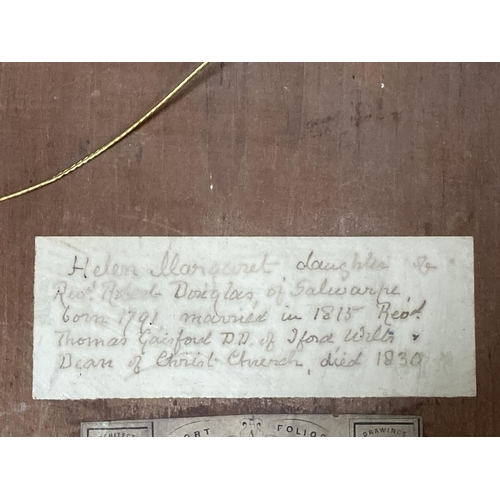 Helen Margaret daughter &
Revd. Robert Douglas of Salwarpe
born 1791 married in 1815 Revd.
Thomas Gaisford D.D. of Iford Wilts &
Dean of Christ Church, died 1830
PORT FOLIOS
DRAWINGS